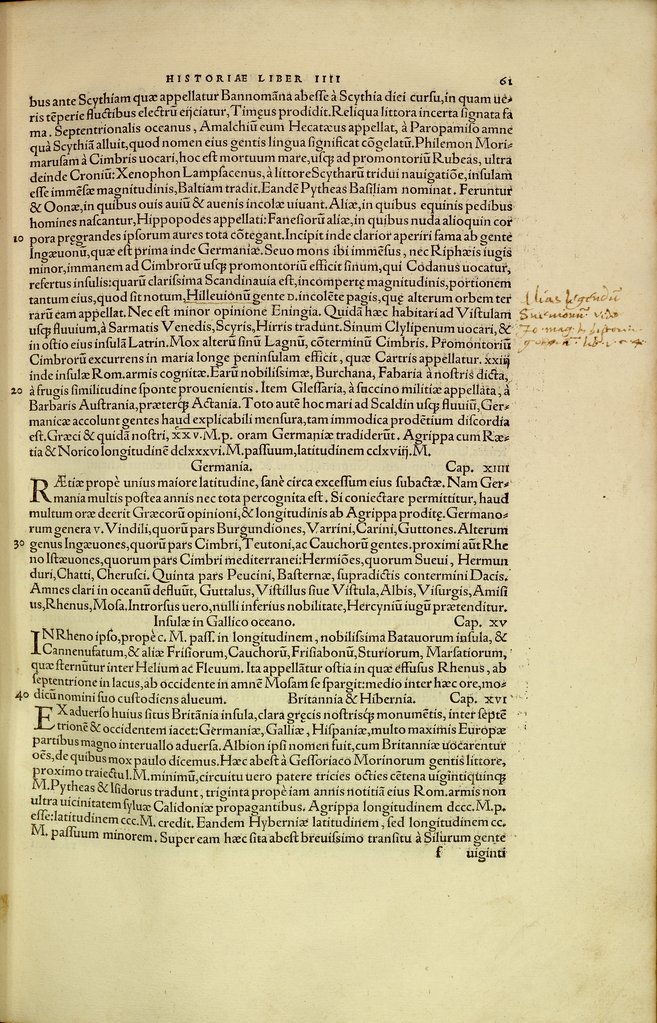 HISTORIAE LIBER IIII 61
bus ante Scythiam quæ appellatur Bannomãna abesse à Scythia diei cursu, in quam ue-
ris tẽperie fluctibus electrũ eijciatur, Timęus prodidit. Reliqua littora incerta signata fa
ma. Septentrionalis oceanus, Amalchiũ eum Hecatæus appellat, à Paropamiso amne
quà Scythiã alluit, quod nomen eius gentis lingua significat cõgelatũ. Philemon Mori-
marusam à Cimbris uocari, hoc est mortuum mare, usq; ad promontoriũ Rubeas, ultra
deinde Croniũ: Xenophon Lampsacenus, à littore Scytharũ tridui nauigatiõe, insulam
esse immẽsæ magnitudinis, Baltiam tradit. Eandẽ Pytheas Basiliam nominat. Feruntur
& Oonæ, in quibus ouis auiũ & auenis incolæ uiuant. Aliæ, in quibus equinis pedibus
homines nascantur, Hippopodes appellati: Fanesiorũ aliæ, in quibus nuda alioquin cor
10 pora pręgrandes ipsorum aures tota cõtegant. Incipit inde clarior aperiri fama ab gente
Ingæuonũ, quæ est prima inde Germaniæ. Seuo mons ibi immẽsus, nec Riphæis iugis
minor, immanem ad Cimbrorũ usq; promontoriũ efficit sinum, qui Codanus uocatur,
refertus insulis: quarũ clarissima Scandinauia est, incompertę magnitudinis, portionem
tantum eius, quod sit notum, Hilleuionũ gente D. incolẽte pagis, quę alterum orbem ter
rarũ eam appellat. Nec est minor opinione Eningia. Quidã hæc habitari ad Vistulam
usq; fluuium, à Sarmatis Venedis, Scyris, Hirris tradunt. Sinum Clylipenum uocari, &
in ostio eius insulã Latrin. Mox alterũ sinũ Lagnũ, cõterminũ Cimbris. Promontoriũ
Cimbrorũ excurrens in maria longe peninsulam efficit, quæ Cartris appellatur. xxiij
inde insulæ Rom. armis cognitæ. Earũ nobilissimæ, Burchana, Fabaria à nostris dicta,
20 à frugis similitudine sponte prouenientis. Item Glessaria, à succino militiæ appellata, à
Barbaris Austrania, præterq; Actania. Toto autẽ hoc mari ad Scaldin usq; fluuiũ, Ger-
manicæ accolunt gentes haud explicabili mensura, tam immodica prodẽtium discordia
est. Gręci & quidã nostri, xxv. M.p. oram Germaniæ tradiderũt. Agrippa cum Ræ-
tia & Norico longitudinẽ dclxxxvi. M. passuum, latitudinem cclxviij. M.
Germania. Cap. xiiii
RÆtiæ propè unius maiore latitudine, sanè circa excessum eius subactæ. Nam Ger-
mania multis postea annis nec tota percognita est. Si coniectare permittitur, haud
multum oræ deerit Græcorũ opinioni, & longitudinis ab Agrippa proditę. Germano-
rum genera v. Vindili, quorũ pars Burgundiones, Varrini, Carini, Guttones. Alterum
30 genus Ingæuones, quorũ pars Cimbri, Teutoni, ac Cauchorũ gentes. proximi aũt Rhe
no Istæuones, quorum pars Cimbri mediterranei: Hermiões, quorum Sueui, Hermun
duri, Chatti, Cherusci. Quinta pars Peucini, Basternæ, supradictis contermini Dacis.
Amnes clari in oceanũ defluũt, Guttalus, Vistillus siue Vistula, Albis, Visurgis, Amisi
us, Rhenus, Mosa. Introrsus uero, nulli inferius nobilitate, Hercyniũ iugũ prætenditur.
Insulæ in Gallico oceano. Cap. xv
IN Rheno ipso, propè c. M. pass. in longitudinem, nobilissima Batauorum insula, &
Cannenufatum, & aliæ Frisiorum, Cauchorũ, Frisiabonũ, Sturiorum, Marsatiorum,
quæ sternũtur inter Helium ac Fleuum. Ita appellãtur ostia in quæ effusus Rhenus, ab
septentrione in lacus, ab occidente in amnẽ Mosam se spargit: medio inter hæc ore, mo-
40 dicũ nomini suo custodiens alueum. Britannia & Hibernia. Cap. xvi
EX aduerso huius situs Britãnia insula, clara gręcis nostrisq; monumẽtis, inter septẽ
trionẽ & occidentem iacet: Germaniæ, Galliæ, Hispaniæ, multo maximis Europæ
partibus magno interuallo aduersa. Albion ipsi nomen fuit, cum Britanniæ uocarentur
oẽs, de quibus mox paulo dicemus. Hæc abest à Gessoriaco Morinorum gentis littore,
proximo traiectu l. M. minimũ, circuitu uero patere tricies octies cẽtena uigintiquinq;
M. Pytheas & Isidorus tradunt, triginta propè iam annis notitiã eius Rom. armis non
ultra uicinitatem syluæ Calidoniæ propagantibus. Agrippa longitudinem dccc. M.p.
esse: latitudinem ccc. M. credit. Eandem Hyberniæ latitudinem, sed longitudinem cc.
M. passuum minorem. Super eam hæc sita abest breuissimo transitu à Silurum gente
f uiginti
Alias legendũ